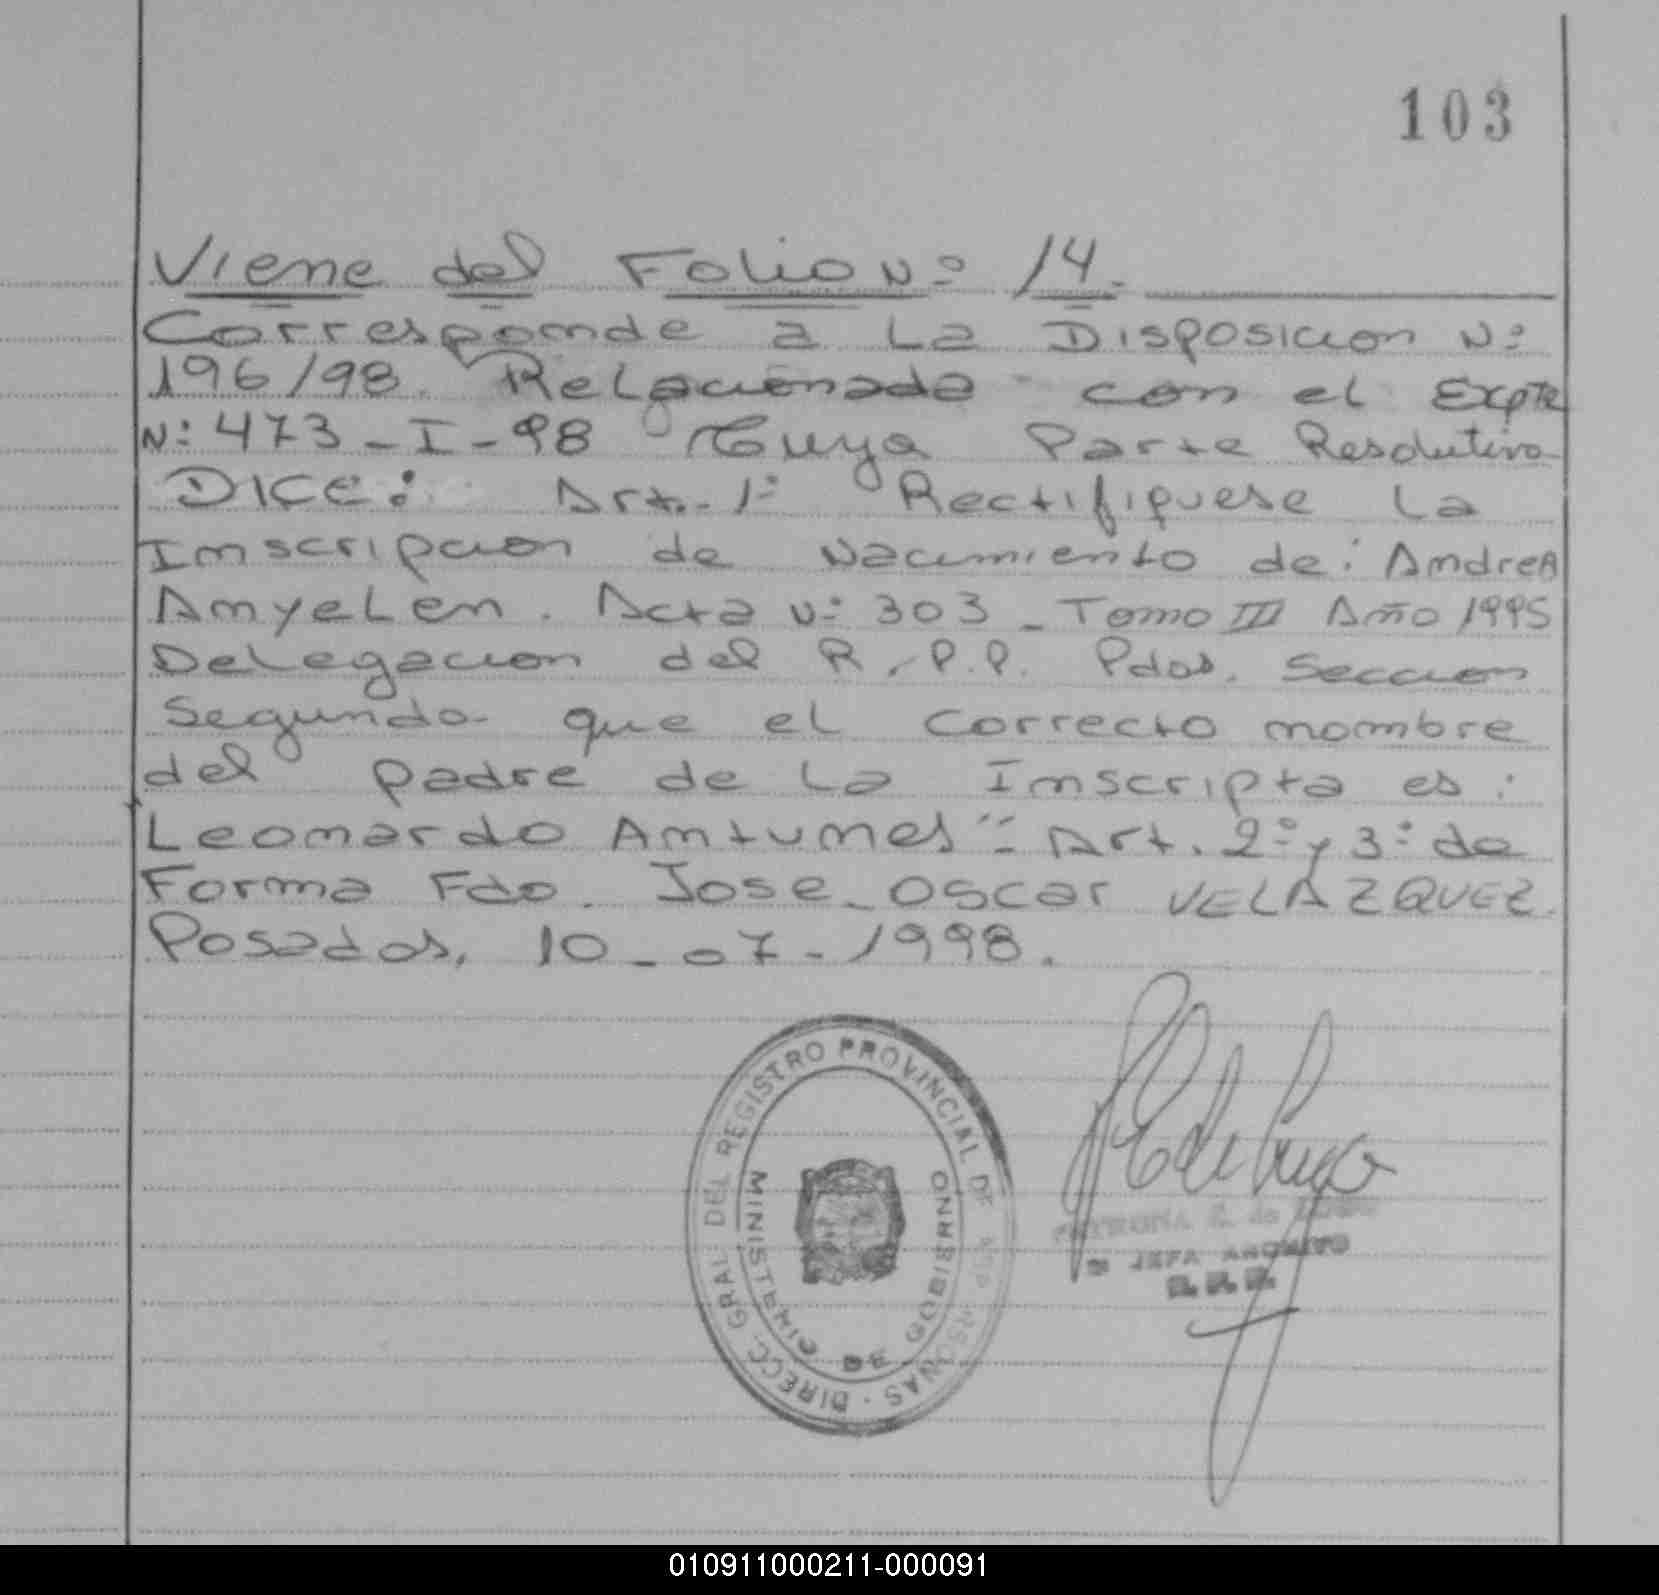 103
Viene del Folio Nº 14.
Corresponde a La Disposicion Nº
196/98. Relacionada con el Expte
Nº 473-I-98 Cuya Parte Resolutiva
DICE: Art.-1º Rectifiquese La
Inscripcion de Nacimiento de: Andrea
Anyelen. Acta Nº 303 - Tomo III Año 1995
Delegacion del R.P.P. Pdas. Seccion
Segunda que el Correcto nombre
del padre de La Inscripta es:
Leonardo Antunes" - Art. 2º y 3º de
Forma Fdo. Jose Oscar VELAZQUEZ.
Posadas, 10-07-1998.
DIRECC. GRAL. DEL REGISTRO PROVINCIAL DE LAS PERSONAS
MINISTERIO DE GOBIERNO
JEFA ARCHIVO
010911000211-000091